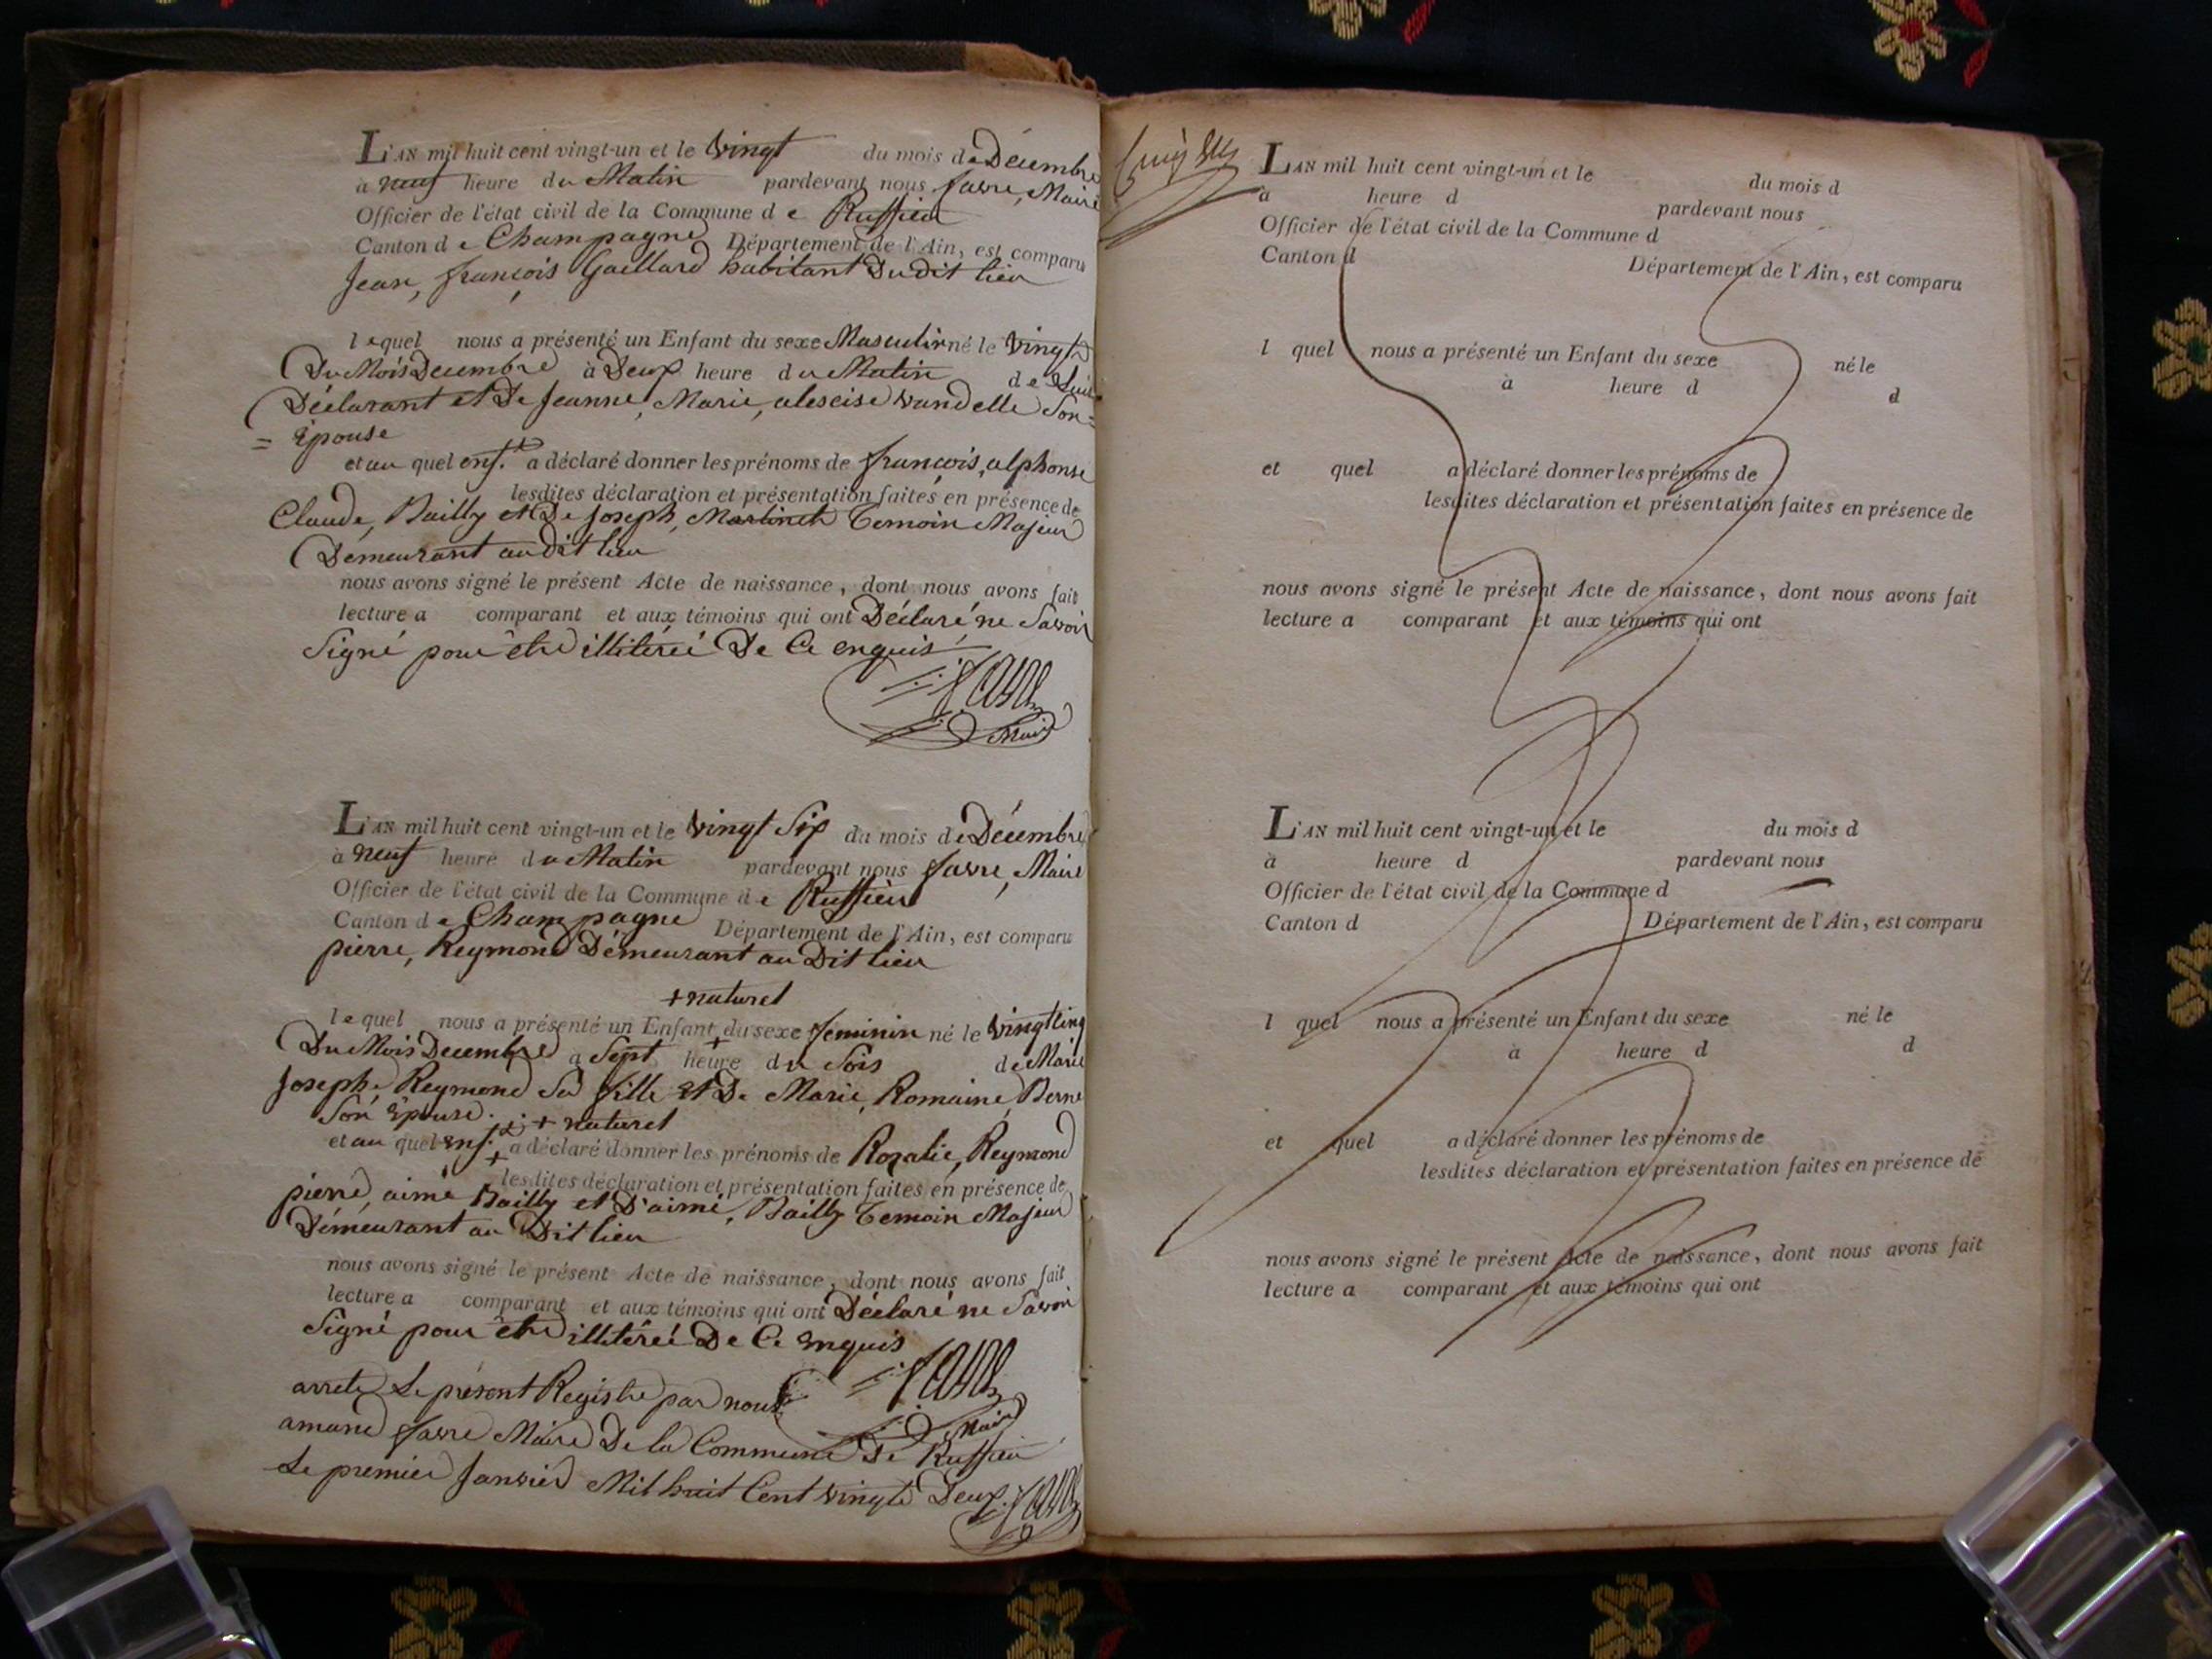 L'AN mil huit cent vingt-un et le vingt du mois de Décembre
à neuf heure du Matin pardevant nous favre, Maire
Officier de l'état civil de la Commune de Ruffieu
Canton de Champagne Département de l'Ain, est comparu
Jean, françois Gaillard habitant Dudit lieu
lequel nous a présenté un Enfant du sexe Masculin né le vingt
Du Mois Decembre à Deux heure du Matin de
Déclarant et De Jeanne, Marie, vandelle Son=
=Epouse
et au quel enf.t a déclaré donner les prénoms de françois, alphonse
lesdites déclaration et présentation faites en présence de
Claude, Bailly et De Joseph, Martinet Temoin Majeur
Demeurant audit lieu
nous avons signé le présent Acte de naissance, dont nous avons fait
lecture a comparant et aux témoins qui ont Déclaré ne Savoir
Signé pour être illiteré De Ce enquis
favre
Maire
L'AN mil huit cent vingt-un et le vingt Six du mois de Décembre
à neuf heure du Matin pardevant nous favre, Maire
Officier de l'état civil de la Commune de Ruffieu
Canton de Champagne Département de l'Ain, est comparu
pierre, Reymond Démeurant au Dit lieu
+ naturel
lequel nous a présenté un Enfant + du sexe feminin né le vingt cinq
Du Mois Decembre a Sept heure du Soir de Marie
Joseph, Reymond Sa fille et De Marie, Romaine, Berne
Son Epouse. + naturel
et au quel enf.t + a déclaré donner les prénoms de Rozalie, Reymond
lesdites déclaration et présentation faites en présence de
pierre, aimé Bailly et D'aimé, Bailly Temoin Majeur
Démeurant au Dit lieu
nous avons signé le présent Acte de naissance, dont nous avons fait
lecture a comparant et aux témoins qui ont Déclaré ne Savoir
Signé pour être illiteré De Ce enquis
favre
Maire
arreté Le présent Registre par nous
amand favre Maire De la Commune De Ruffieu
Le premier Janvier Mil huit Cent vingt Deux. favre
L'AN mil huit cent vingt-un et le du mois d
à heure d pardevant nous
Officier de l'état civil de la Commune d
Canton d Département de l'Ain, est comparu
l quel nous a présenté un Enfant du sexe né le
à heure d d
et quel a déclaré donner les prénoms de
lesdites déclaration et présentation faites en présence de
nous avons signé le présent Acte de naissance, dont nous avons fait
lecture a comparant et aux témoins qui ont
L'AN mil huit cent vingt-un et le du mois d
à heure d pardevant nous
Officier de l'état civil de la Commune d
Canton d Département de l'Ain, est comparu
l quel nous a présenté un Enfant du sexe né le
à heure d d
et quel a déclaré donner les prénoms de
lesdites déclaration et présentation faites en présence de
nous avons signé le présent Acte de naissance, dont nous avons fait
lecture a comparant et aux témoins qui ont